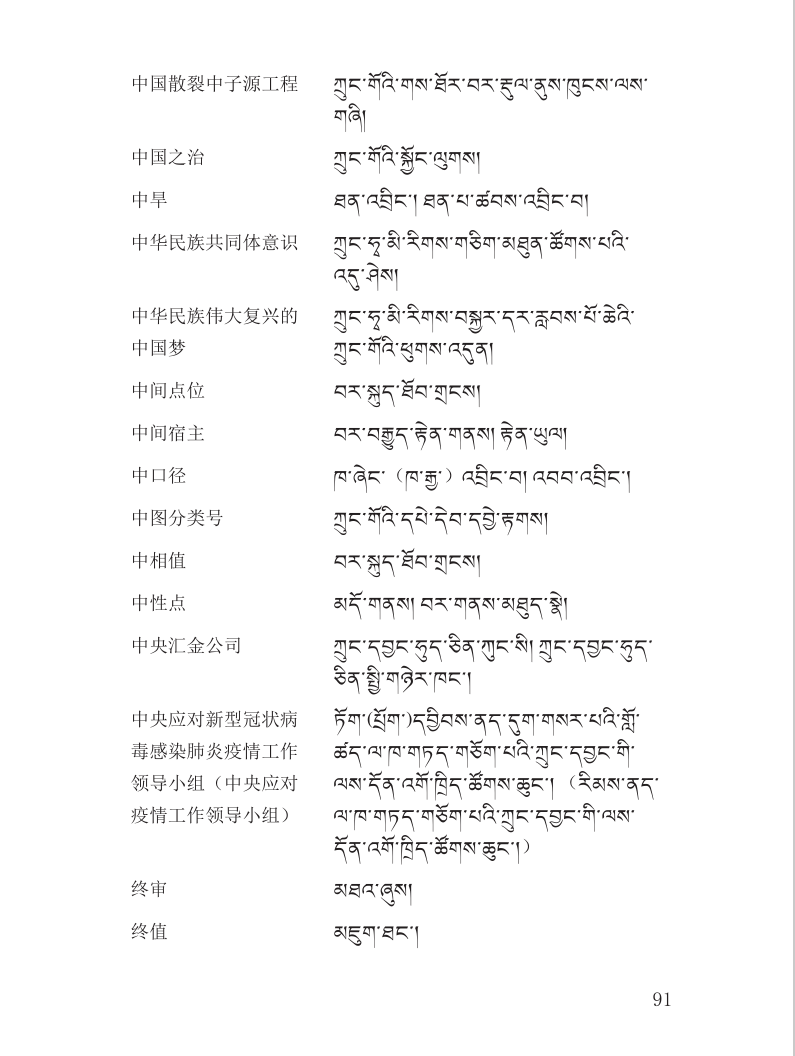 中国散裂中子源工程 ཀྲུང་གོའི་གས་ཐོར་བར་རྡུལ་ནུས་ཁུངས་ལས་
གཞི།
中国之治 ཀྲུང་གོའི་སྐྱོང་ལུགས།
中旱 ཐན་འབྲིང་། ཐན་པ་ཚབས་འབྲིང་བ།
中华民族共同体意识 ཀྲུང་ཧྭ་མི་རིགས་གཅིག་མཐུན་ཚོགས་པའི་
འདུ་ཤེས།
中华民族伟大复兴的 ཀྲུང་ཧྭ་མི་རིགས་བསྐྱར་དར་རླབས་པོ་ཆེའི་
中国梦 ཀྲུང་གོའི་ཕུགས་འདུན།
中间点位 བར་སྐུད་ཐོབ་གྲངས།
中间宿主 བར་བརྒྱུད་རྟེན་གནས། རྟེན་ཡུལ།
中口径 ཁ་ཞེང་（ཁ་རྒྱ་）འབྲིང་བ། འབབ་འབྲིང་།
中图分类号 ཀྲུང་གོའི་དཔེ་དེབ་དབྱེ་རྟགས།
中相值 བར་སྐུད་ཐོབ་གྲངས།
中性点 མདོ་གནས། བར་གནས་མཐུད་སྣེ།
中央汇金公司 ཀྲུང་དབྱང་ཧུད་ཅིན་ཀུང་སི། ཀྲུང་དབྱང་ཧུད་
ཅིན་སྤྱི་གཉེར་ཁང་།
中央应对新型冠状病 ཏོག་(པྲོག་)དབྱིབས་ནད་དུག་གསར་པའི་གློ་
毒感染肺炎疫情工作 ཚད་ལ་ཁ་གཏད་གཅོག་པའི་ཀྲུང་དབྱང་གི་
领导小组（中央应对 ལས་དོན་འགོ་ཁྲིད་ཚོགས་ཆུང་། （རིམས་ནད་
疫情工作领导小组） ལ་ཁ་གཏད་གཅོག་པའི་ཀྲུང་དབྱང་གི་ལས་
དོན་འགོ་ཁྲིད་ཚོགས་ཆུང་།）
终审 མཐའ་ཞུས།
终值 མཇུག་ཐང་།
91